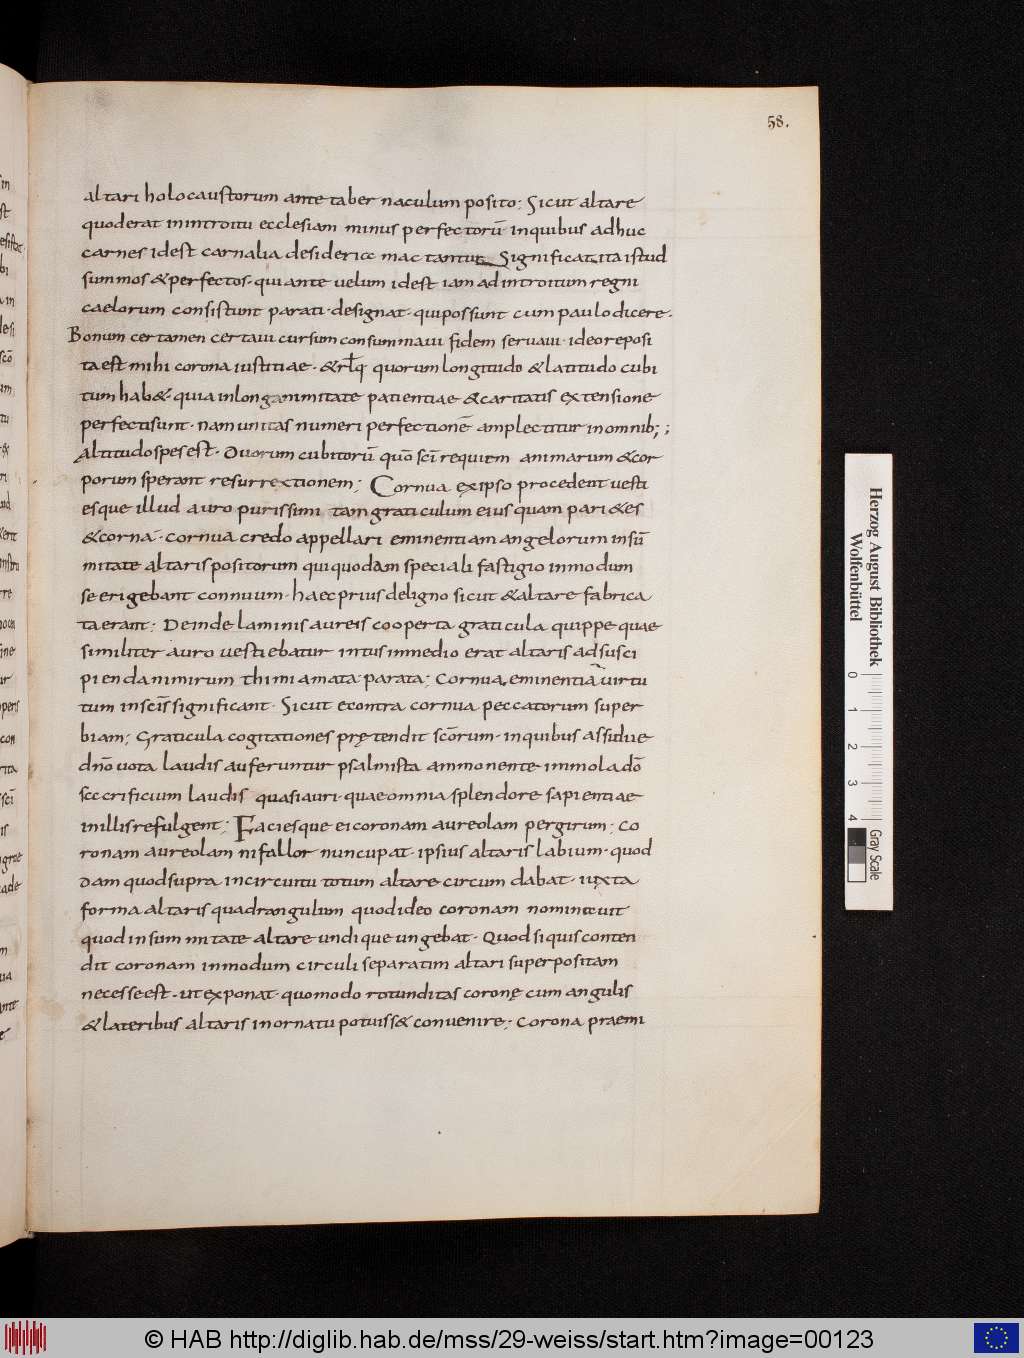 58.
altari holocaustorum ante tabernaculum posito; Sicut altare
quod erat in introitu ecclesiam minus perfectorū in quibus adhuc
carnes idest carnalia desideria mactantur. Significat ita istud
summos & perfectos · qui ante uelum idest iam ad introitum regni
caelorum consistunt parati · designat · qui possunt cum paulo dicere.
Bonum certamen certaui cursum consummaui fidem seruaui · ideo reposi
ta est mihi corona iustitiae · & rlq quorum longitudo & latitudo cubi
tum hab& · quia in longanimitate patientiae & caritatis extensione
perfecti sunt · nam unitas numeri perfectionē amplectitur in omnib; ;
Altitudo spes est · Duorum cubitorū quō scī requiem animarum & cor
porum sperant resurrextionem; Cornua ex ipso procedent uesti
esque illud auro purissimo tam graticulum eius quam pari&es
& corna · cornua credo appellari eminentiam angelorum in sū
mitate altaris positorum qui quodam speciali fastigio in modum
se erigebant connuum · haec prius de ligno sicut & altare fabrica
ta erant; Deinde laminis aureis cooperta graticula quippe quae
similiter auro uestiebatur intus in medio erat altaris ad susci
pienda nimirum thimiamata parata; Cornua eminentiā uirtu
tum in scīs significant · Sicut econtra cornua peccatorum super
biam; Graticula cogitationes prętendit scōrum · in quibus assidue
dnō uota laudis auferuntur psalmista ammonente immola dō
saccrificium laudis quasi auri · quae omnia splendore sapientiae
in illis refulgent; Faciesque ei coronam aureolam per girum; Co
ronam aureolam ni fallor nuncupat · ipsius altaris labium · quod
dam quod supra in circuitu totum altare circumdabat · iuxta
forma altaris quadrangulum quod ideo coronam nominauit
quod in summitate altare undique ungebat · Quod si quis conten
dit coronam in modum circuli separatim altari superpositam
necesse est · ut exponat · quomodo rotunditas coronę cum angulis
& lateribus altaris in ornatu potuiss& conuenire; Corona praemi
Herzog August Bibliothek
Wolfenbüttel
0 1 2 3 4
Gray Scale
© HAB http://diglib.hab.de/mss/29-weiss/start.htm?image=00123